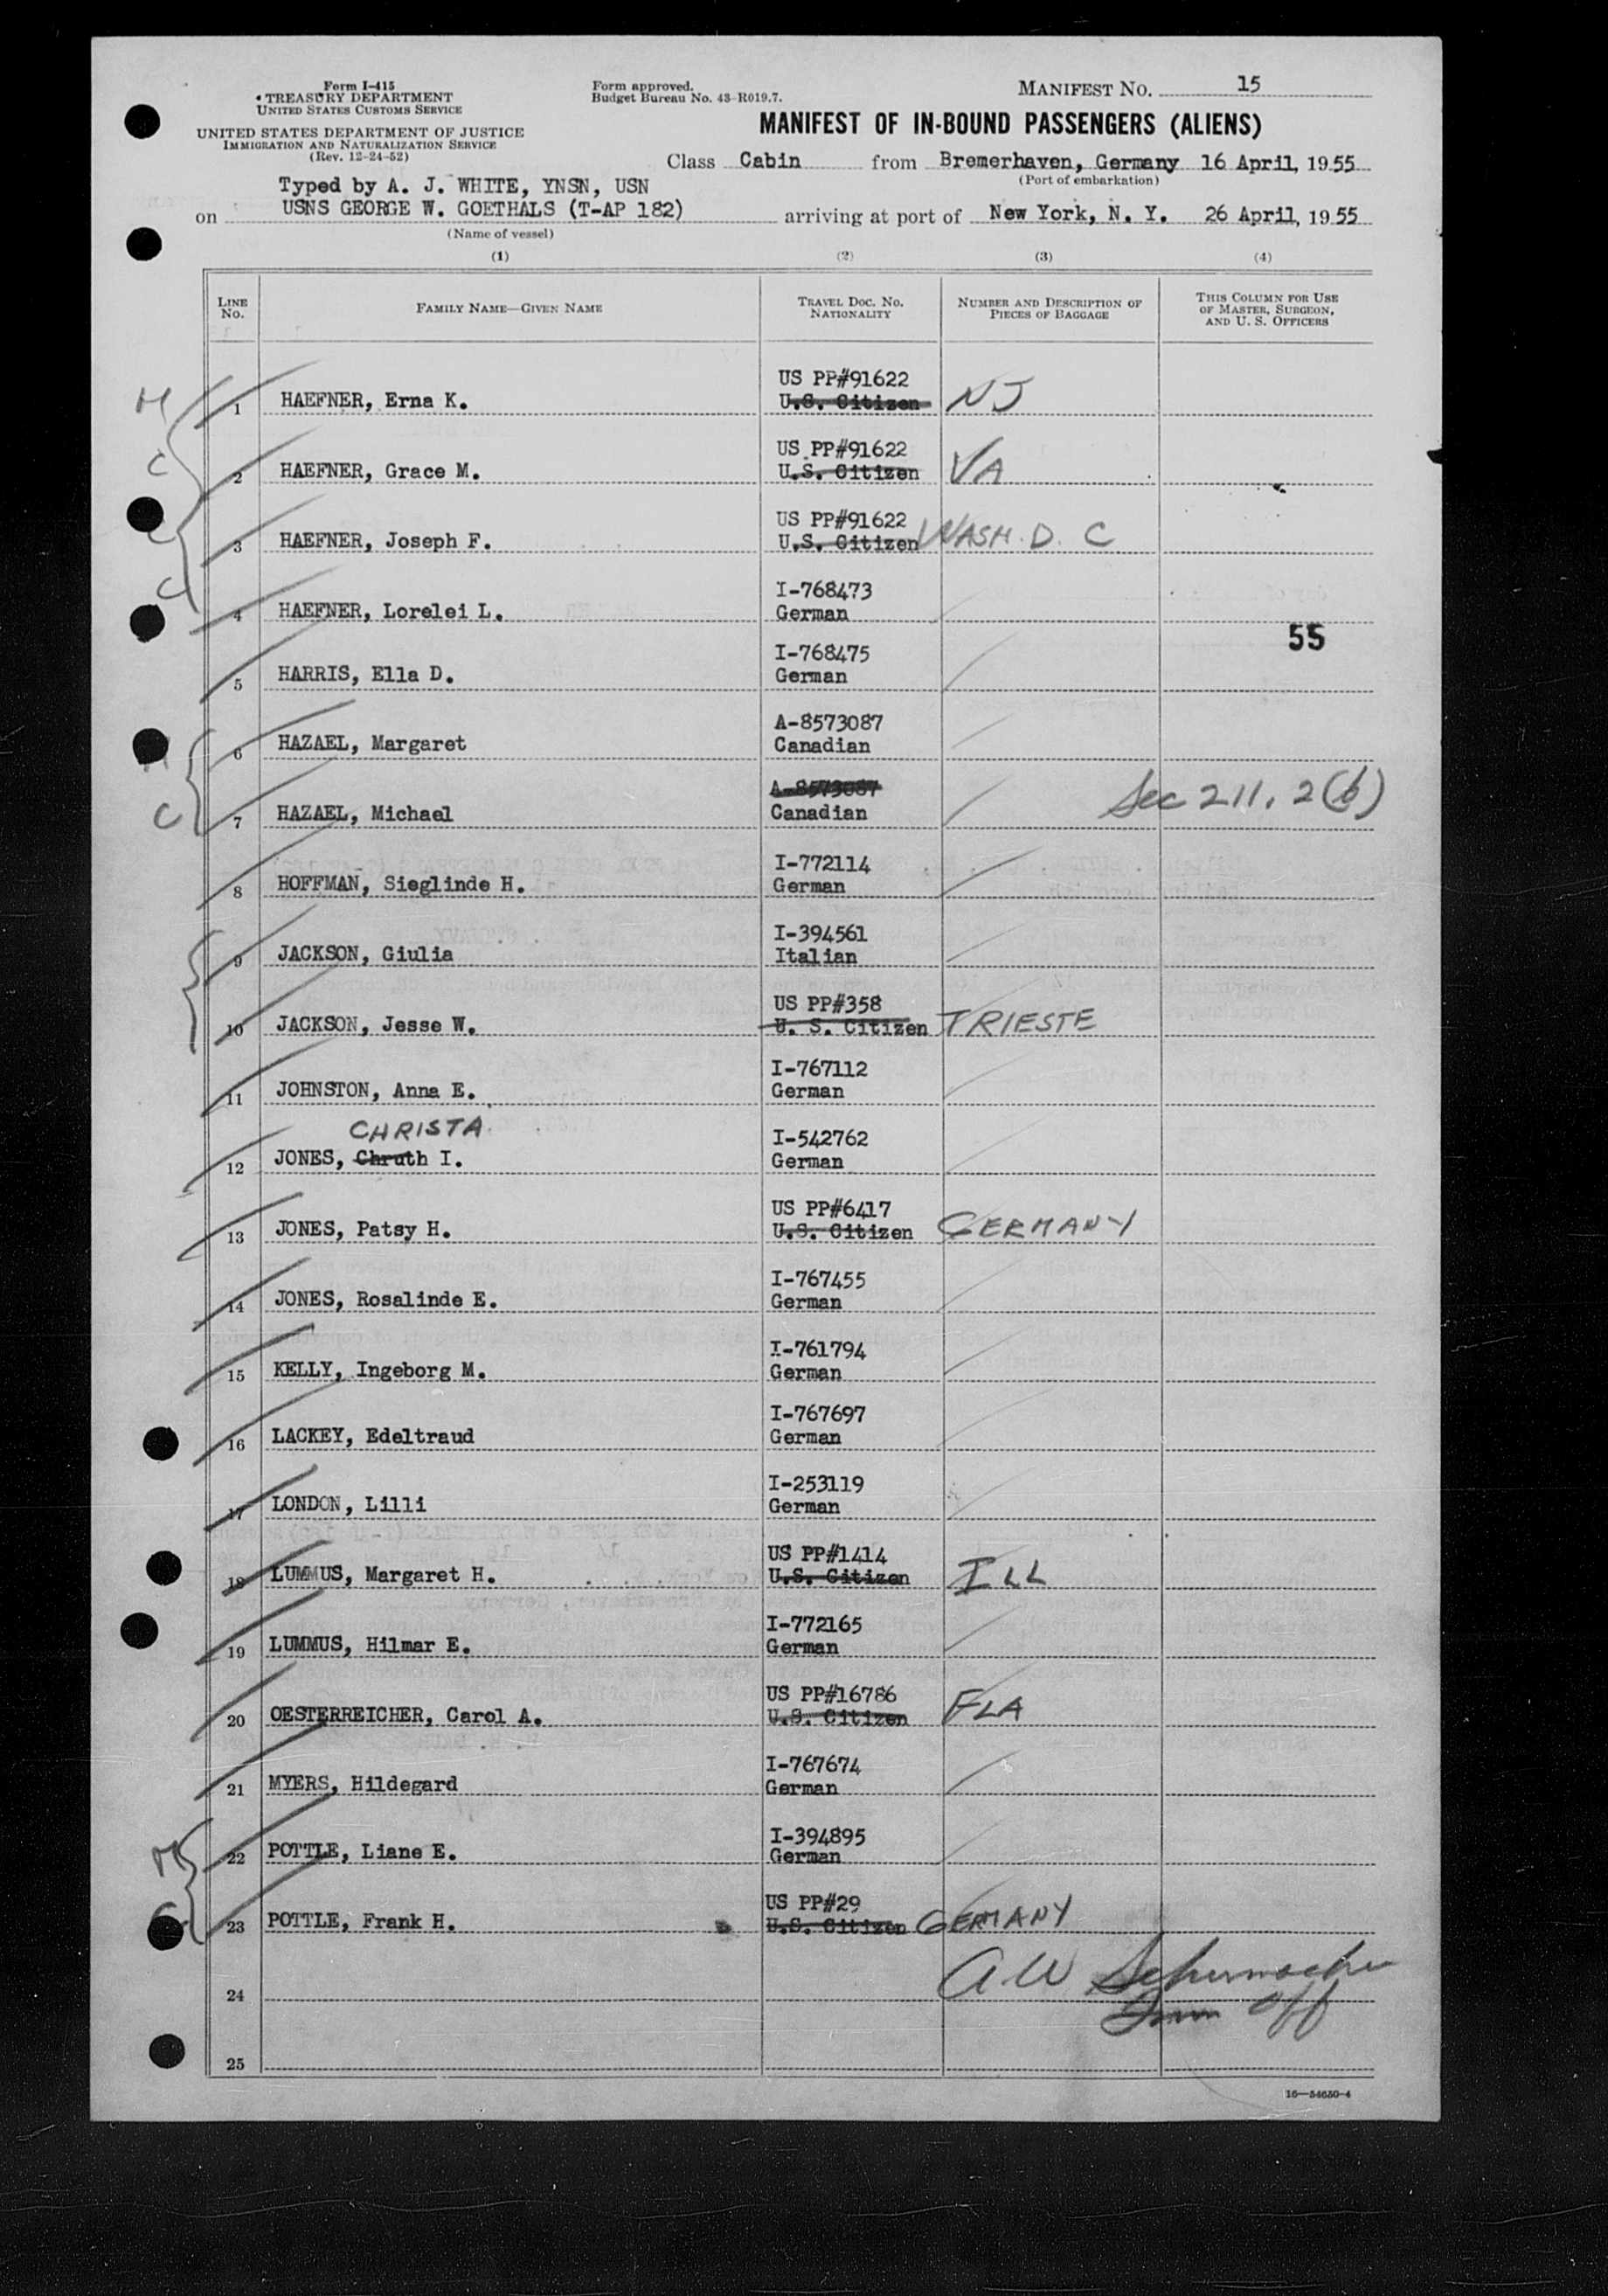 Form I-415
TREASURY DEPARTMENT
UNITED STATES CUSTOMS SERVICE
UNITED STATES DEPARTMENT OF JUSTICE
IMMIGRATION AND NATURALIZATION SERVICE
(Rev. 12-24-52)
Form approved.
Budget Bureau No. 43-R019.7.
MANIFEST NO. 15
MANIFEST OF IN-BOUND PASSENGERS (ALIENS)
Class Cabin from Bremerhaven, Germany 16 April, 1955
(Port of embarkation)
Typed by A. J. WHITE, YNSN, USN
on USNS GEORGE W. GOETHALS (T-AP 182) arriving at port of New York, N. Y. 26 April, 1955
(Name of vessel)
(1) (2) (3) (4)
LINE NO. FAMILY NAME—GIVEN NAME TRAVEL DOC. NO. NATIONALITY NUMBER AND DESCRIPTION OF PIECES OF BAGGAGE THIS COLUMN FOR USE OF MASTER, SURGEON, AND U. S. OFFICERS
US PP#91622
M 1 HAEFNER, Erna K. U.S. Citizen NJ
US PP#91622
C 2 HAEFNER, Grace M. U.S. Citizen VA
US PP#91622
C 3 HAEFNER, Joseph F. U.S. Citizen WASH. D. C
I-768473
C 4 HAEFNER, Lorelei L. German
55
I-768475
5 HARRIS, Ella D. German
A-8573087
M 6 HAZAEL, Margaret Canadian
A-8573087
C 7 HAZAEL, Michael Canadian Sec 211.2(b)
I-772114
8 HOFFMAN, Sieglinde H. German
I-394561
9 JACKSON, Giulia Italian
US PP#358
10 JACKSON, Jesse W. U. S. Citizen TRIESTE
I-767112
11 JOHNSTON, Anna E. German
CHRISTA I-542762
12 JONES, Chruth I. German
US PP#6417
13 JONES, Patsy H. U.S. Citizen GERMANY
I-767455
14 JONES, Rosalinde E. German
I-761794
15 KELLY, Ingeborg M. German
I-767697
16 LACKEY, Edeltraud German
I-253119
17 LONDON, Lilli German
US PP#1414
18 LUMMUS, Margaret H. U.S. Citizen ILL
I-772165
19 LUMMUS, Hilmar E. German
US PP#16786
20 OESTERREICHER, Carol A. U.S. Citizen FLA
I-767674
21 MYERS, Hildegard German
I-394895
M 22 POTTLE, Liane E. German
US PP#29
C 23 POTTLE, Frank H. U.S. Citizen GERMANY
24 A W Schumacher
Imm Off
25
16—54650-4